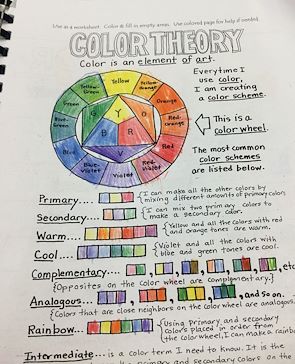 Use as a worksheet. Color & fill in empty areas. Use colored page for help if needed.
COLOR THEORY
Color is an element of art.
Everytime I
use color,
I am creating
a color scheme.
This is a
color wheel.
The most common
color schemes
are listed below.
Yellow
Yellow-Orange
Orange
Red-Orange
Red
Red-Violet
Violet
Blue-Violet
Blue
Blue-Green
Green
Yellow-Green
Y
O
R
V
B
G
Primary....
I can make all the other colors by
mixing different amounts of primary colors.
Secondary....
I can mix two primary colors to
make a secondary color.
Warm....
Yellow and all the colors with red
and orange tones are warm.
Cool....
Violet and all the colors with
blue and green tones are cool.
Complementary.... , , , etc.
(Opposites on the color wheel are complementary.)
Analogous.... , , , and so on.
(Colors that are close neighbors on the color wheel are analogous.)
Rainbow....
Using Primary and secondary
colors placed in order from
the color wheel, I can make a rainbow.
Intermediate.... is a color term I need to know. It is the
primary and secondary Color on the